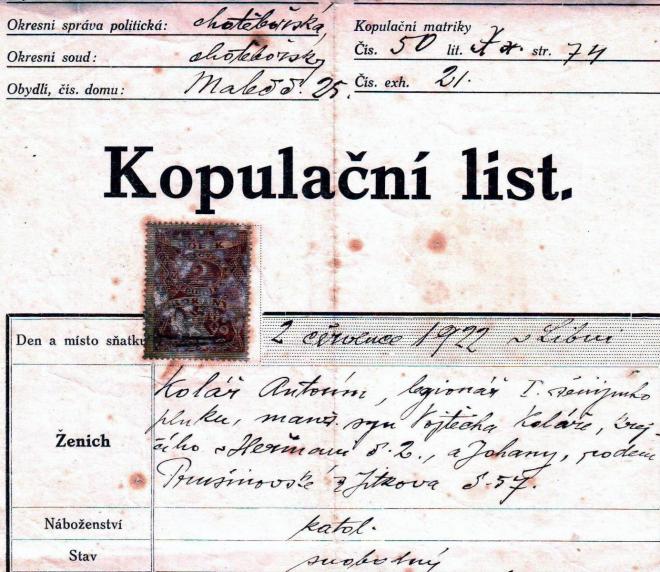 Okresní správa politická: chotěbořská
Kopulační matriky
Čís. 50 lit. str. 74
Okresní soud: chotěbořský
Obydlí, čís. domu: Maleč č. 25.
Čís. exh. 21.
Kopulační list.
Den a místo sňatku 2 července 1922 v Libni
Kolář Antonín, legionář I.
pluku, manž. syn Vojtěcha Koláře, krej-
Ženich
čího v Heřmani č. 2., a Johany, rodem
z Jitkova č. 57.
Náboženství katol.
Stav svobodný